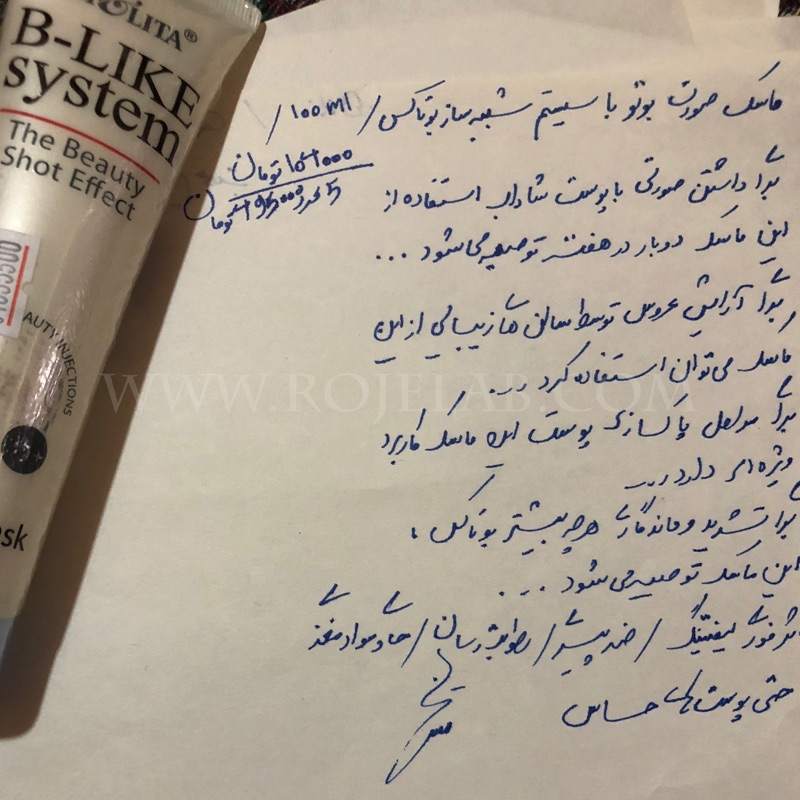 B-LIKE
system
The Beauty
Shot Effect
INJECTIONS
ماسک صورت بوتو با سیستم شبیه ساز بوتاکس / 100 ml /
تومان
برای داشتن صورتی با پوست شاداب استفاده از
این ماسک دوبار در هفته توصیه می شود ...
برای آرایش عروس توسط سالن های زیبایی از این
ماسک می توان استفاده کرد ...
WWW.ROJELAB.COM
برای مراحل پاکسازی پوست این ماسک کاربرد
ویژه ای دارد ...
برای تشدید و ماندگاری هرچه بیشتر بوتاکس ،
این ماسک توصیه می شود ...
فوری لیفتینگ / ضد پیری / رطوبت رسان / حاوی مواد مغذی
حتی پوست های حساس